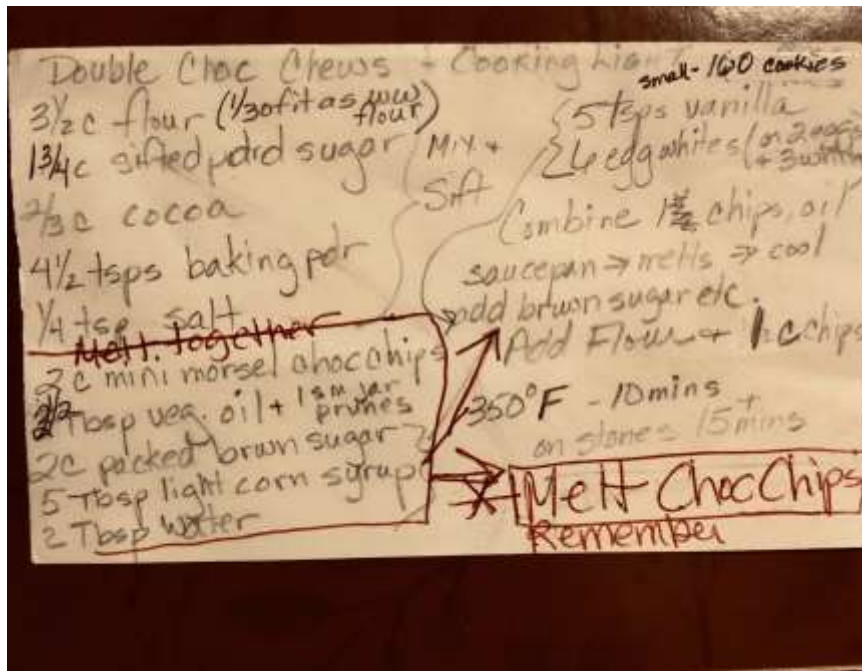 Double Choc Chews - Cooking Light
small - 160 cookies
3 1/2 c flour (1/3 of it as ww flour)
1 3/4 c sifted pdrd sugar
Mix +
Sift
2/3 c cocoa
4 1/2 tsps baking pdr
1/4 tsp salt
Melt together
2 c mini morsel choc chips
Tbsp veg. oil + 1 sm jar prunes
2 c packed brwn sugar
5 Tbsp light corn syrup
2 Tbsp water
5 tsps vanilla
egg whites (or 2 eggs + 3 whites
Combine 1 chips, oil
saucepan → melts → cool
add brwn sugar etc.
Add Flour + c chips
350°F - 10 mins
on stones 15 mins +
Melt Choc Chips
Remember